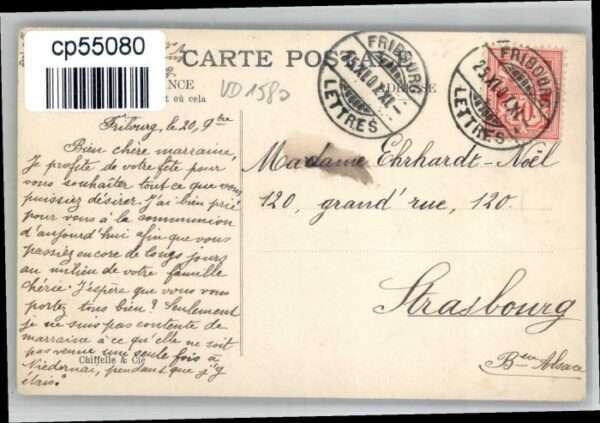 cp55080
CARTE POSTALE
NCE
ADRESSE
t où cela
VD 1580
FRIBOURG
25.XI.07.XI-
LETTRES
FRIBOURG
25.XI.07.XI-
LETTRES
Fribourg, le 20, 9bre
Bien chère marraine,
Je profite de votre fête pour
vous souhaiter tout ce que vous
puissiez désirer. J'ai bien prié
pour vous à la communion
d'aujourd'hui afin que vous
passiez encore de longs jours
au milieu de votre famille
chérie. J'espère que vous vous
portez tous bien? Seulement
je ne suis pas contente de
marraine à ce qu'elle ne soit
pas venue une seule fois à
Niedernai, pendant que j'y
étais.
Chiffelle & Cie
Madame Ehrhardt-Noël
120, grand'rue, 120.
Strasbourg
Bse Alsace